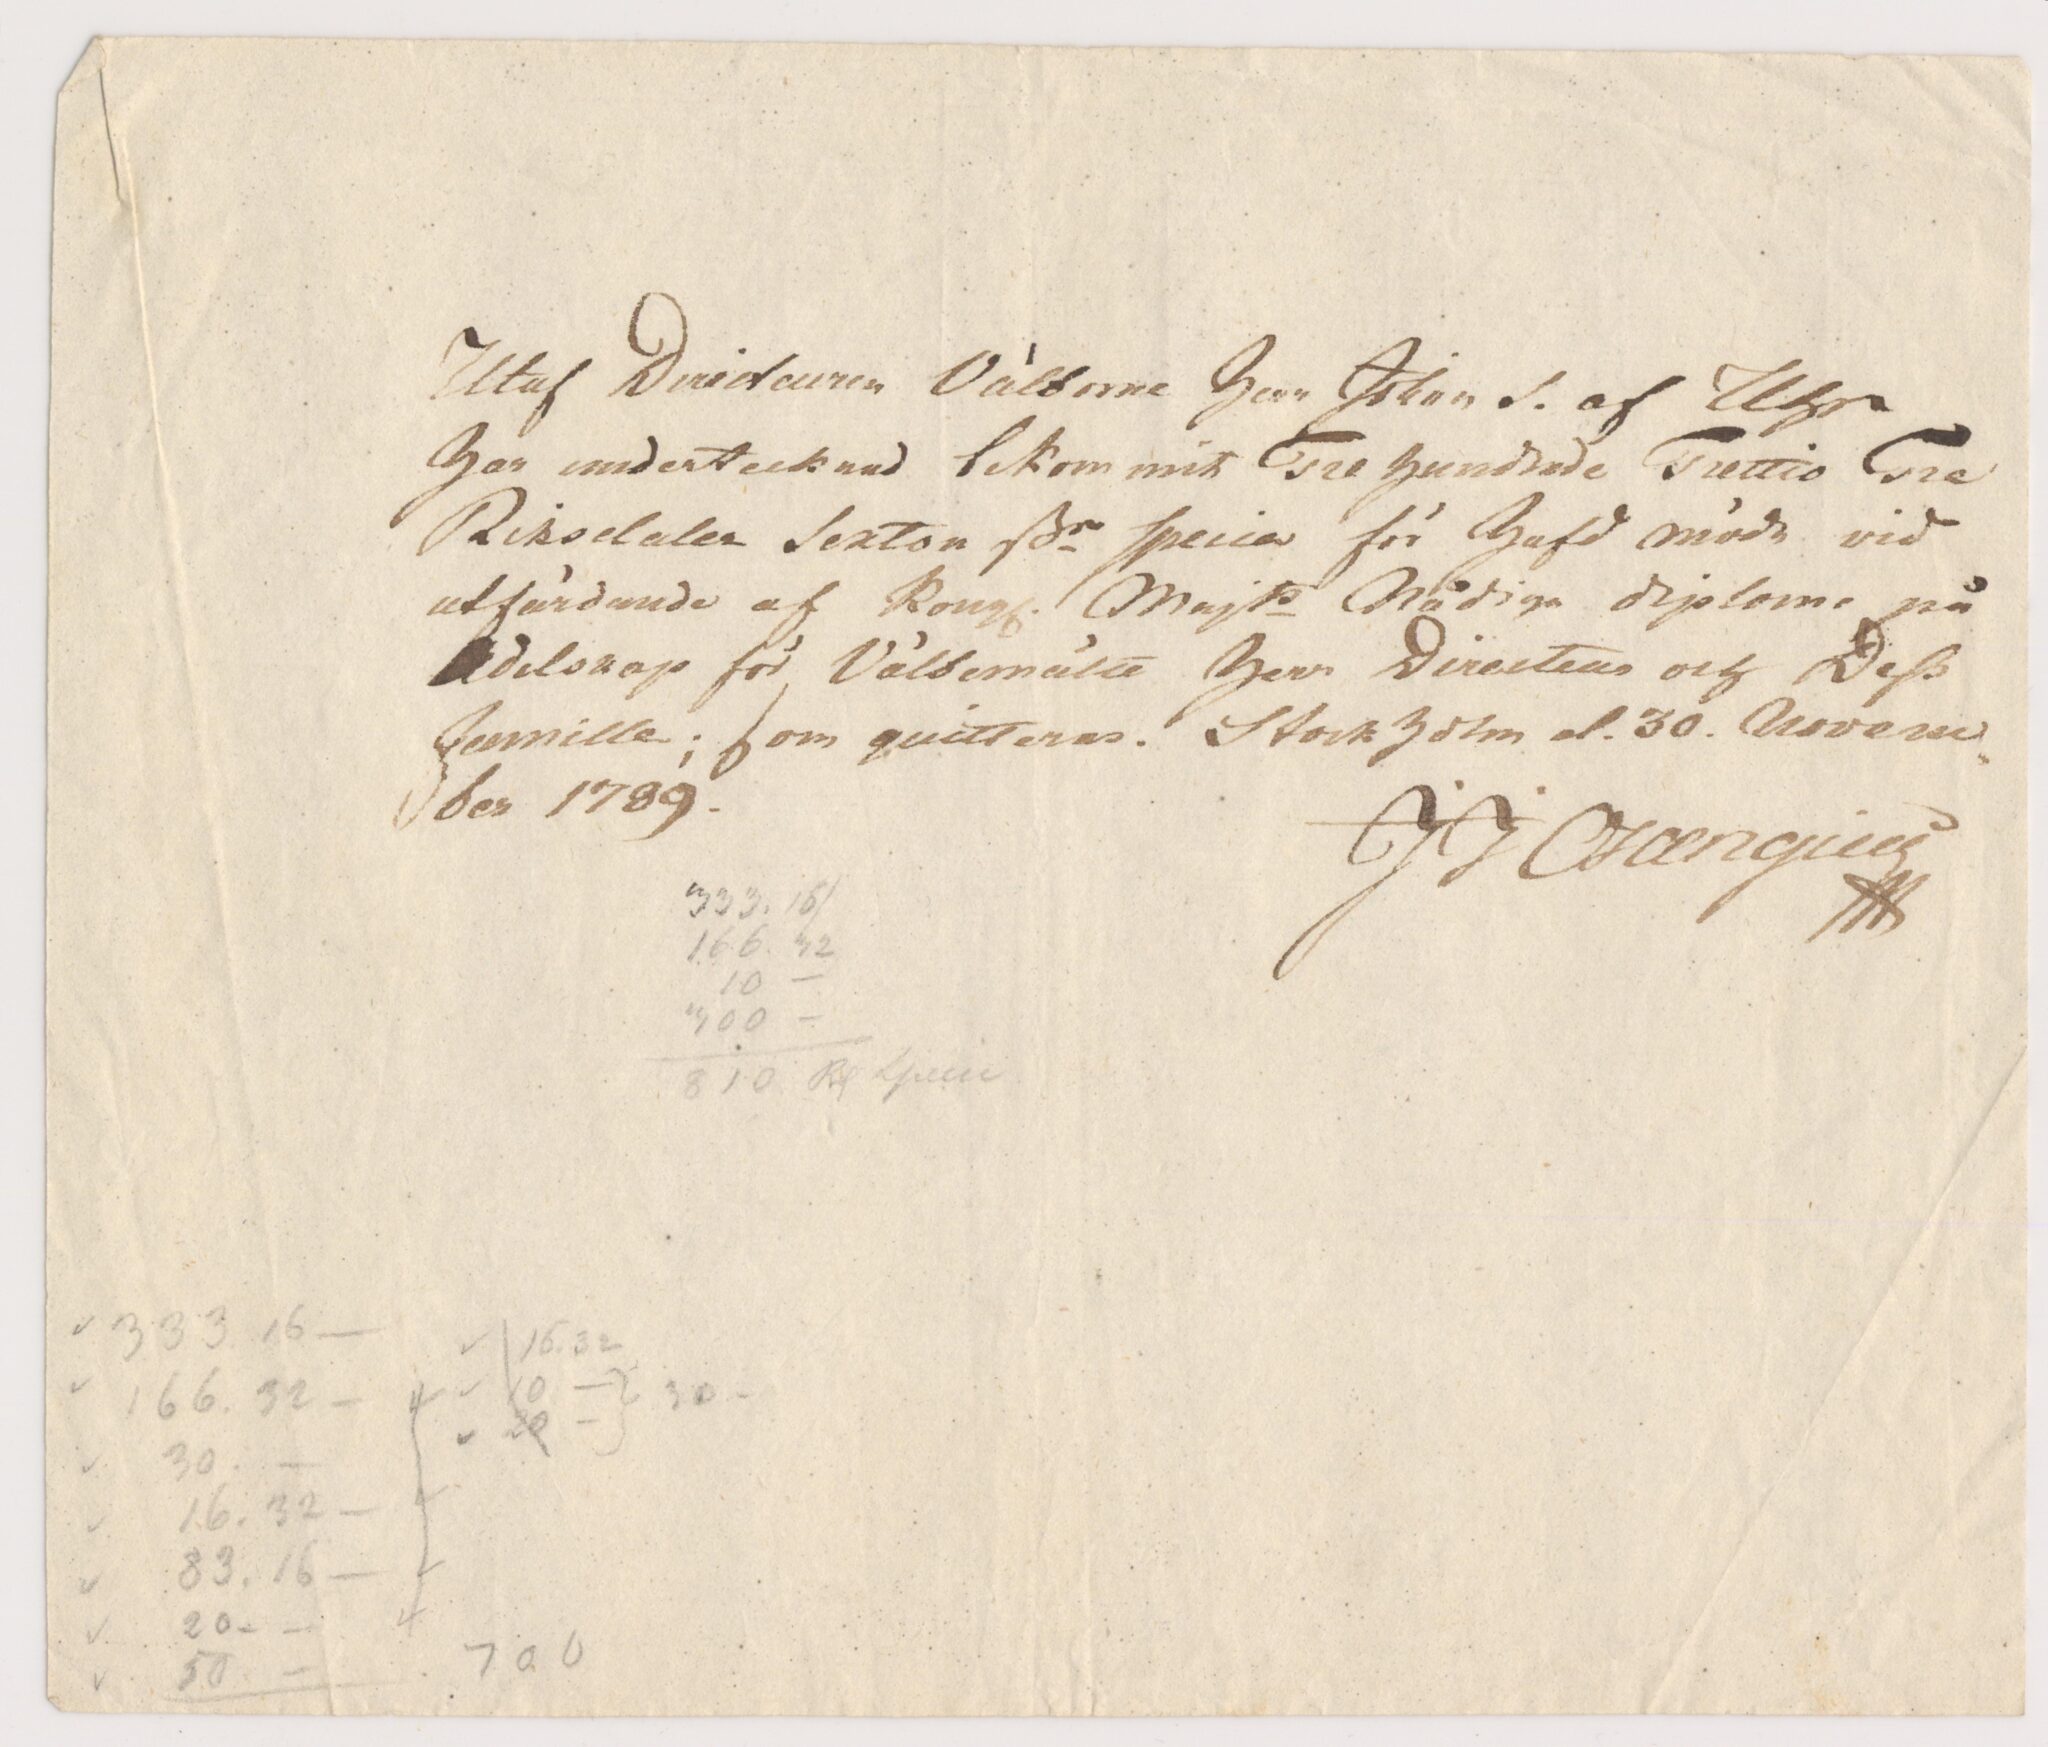 Utaf Directeuren Välborne Herr Johan S. af Uhr
har undertecknad bekommit Trehundrade Trettio Tre
Riksdaler Sexton ßr Specie för hafd möda vid
utfärdande af Kongl. Majts Nådiga diplome på
Adelskap för Välbemälte Herr Directeur och Dess
Famille; som quitteras. Stockholm d. 30. Novem-
ber 1789.
333. 16
166. 32
10 —
300 —
810 Rd Specie
333. 16 —
166. 32 —
30. —
16. 32 —
83. 16 —
20 — —
50 —
700
16. 32
10 —
20 —
30 —